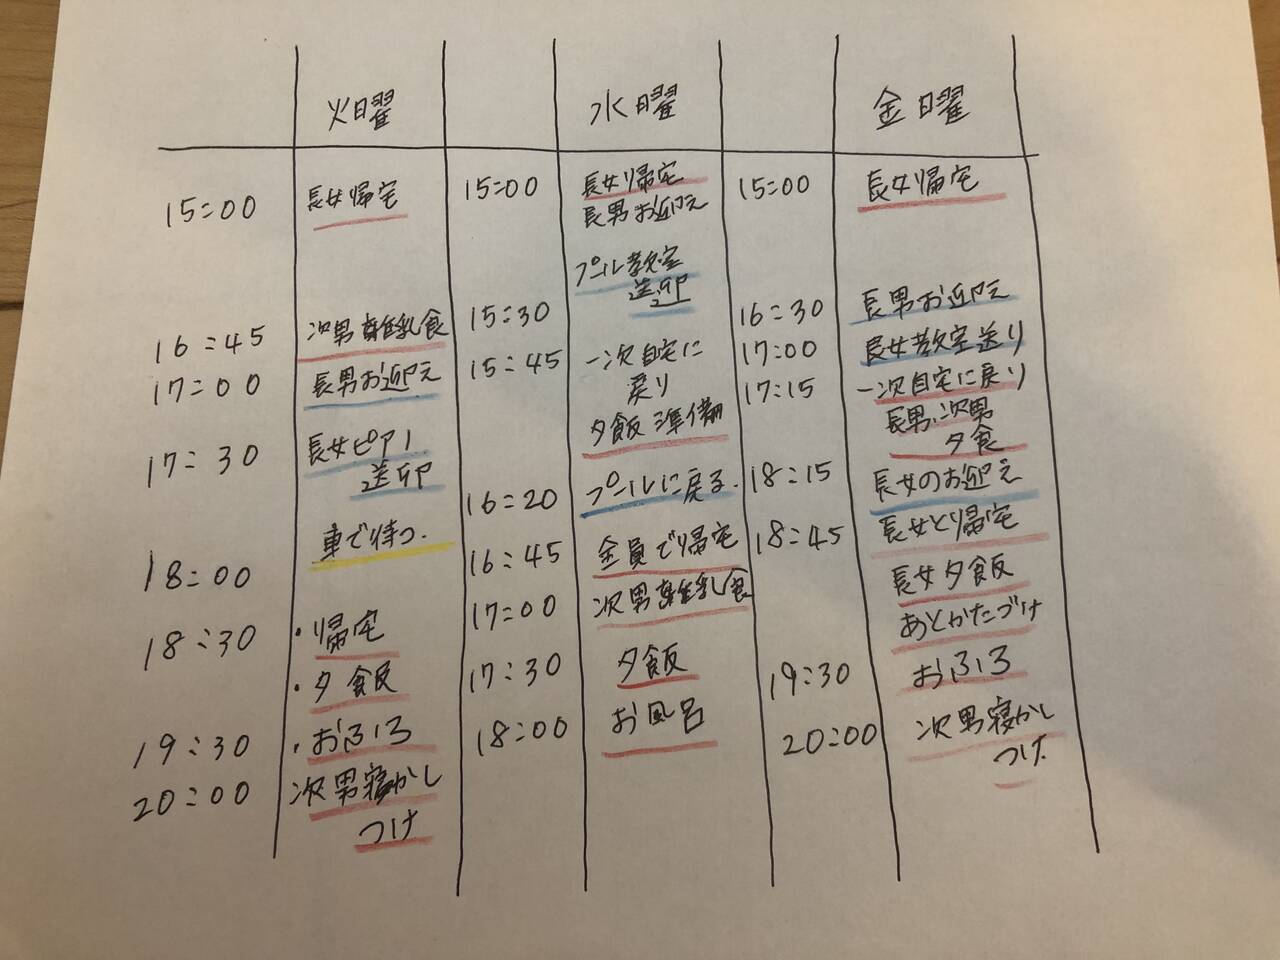 火曜
15:00 長女帰宅
16:45 次男離乳食
17:00 長男お迎え
17:30 長女ピアノ
送迎
車で待つ.
18:00
18:30 ・帰宅
・夕飯
19:30 ・おふろ
20:00 次男寝かし
つけ
水曜
15:00 長女帰宅
長男お迎え
プール教室
送迎
15:30
15:45 一次自宅に
戻り
夕飯準備
16:20 プールに戻る.
16:45 全員で帰宅
17:00 次男離乳食
17:30 夕飯
18:00 お風呂
金曜
15:00 長女帰宅
16:30 長男お迎え
17:00 長女教室送り
17:15 一次自宅に戻り
長男、次男
夕食
18:15 長女のお迎え
18:45 長女と帰宅
長女夕飯
あとかたづけ
19:30 おふろ
20:00 次男寝かし
つけ